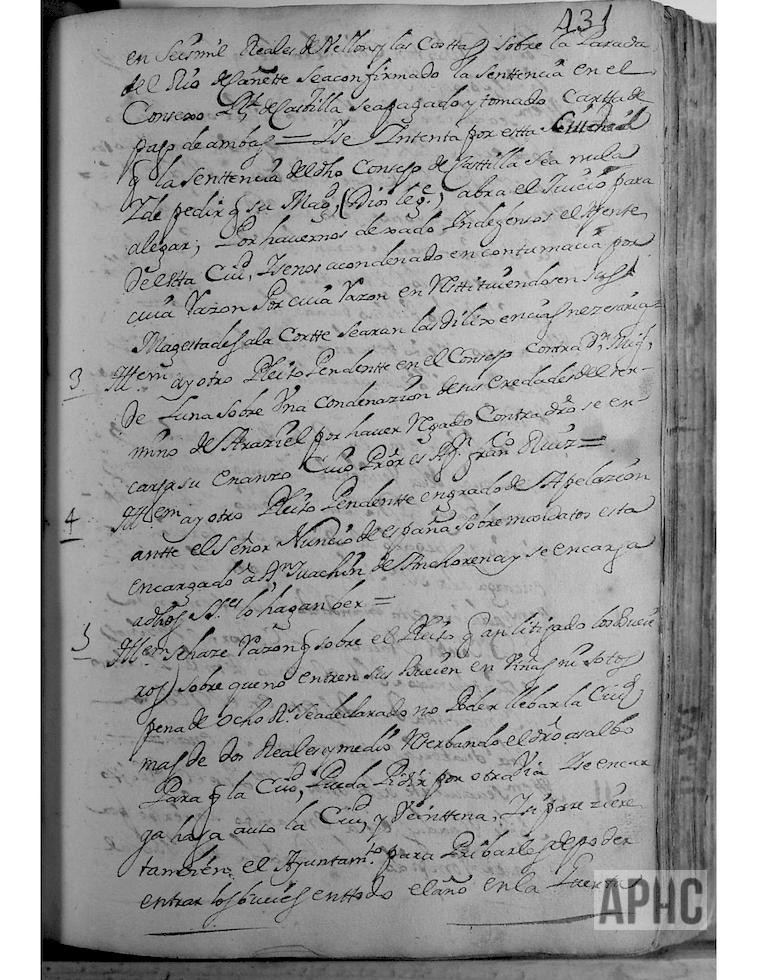 431
en Seismil Reales de Vellon, y las Costtas sobre la Parada
del Rio de Cañette se aconfirmado la senttencia en el
Consexo R.l de Casttilla se apagado y tomado Cartta de
pago de ambas = Ise Yntenta por estta Ciudad
q la senttencia del dho Consejo de Casttilla sea nula
I de pedir q su Mag.d, (Dios le g.e) abra el Juicio para
alegar; Por havernos dexado Indefensos el Ajente
de estta Ciu.d, Ise nos acondenado en conttumacia por
cuia Razon Por cuia Razon en Resttituiendose sus
Magesttades ala Cortte se aran las dilixencias nezesarias
3 Ittem ay otro Pleito Pendentte en el Consejo Contra D.n
de Luna sobre Una condenazion de sus Eredades del ter-
mino de Araziel por haver Negado Contradro se en-
carga su Cuio Pror es D.n Fran.co Ruiz =
4 Ittem ay otro Pleito Pendentte en grado de Apelazion
antte el Señor Nuncio de España sobre mandatos esta
encargado à D.n Juachin de Anchorena y se encarga
adhos S.res lo hagan ber =
5 Ittem se haze Razon q sobre el Pleito q an litigado los Bueie
ros, sobre que no entren sus Bueies en Viñas ni sotos
pena de ocho R.s se a declarado no Poder llebar la Ciu.d
mas de dos Reales y medio Reserbando el dro asalbo
Para q la Ciu.d, Pueda Pedir por otra Via Ise encar
ga haga auto la Ciu.d, y Veinttena, I si pareziere
tambien el Ayuntam.to para Pribarles de poder
entrar los bueies en ttodo el año en la Huerta
APHC